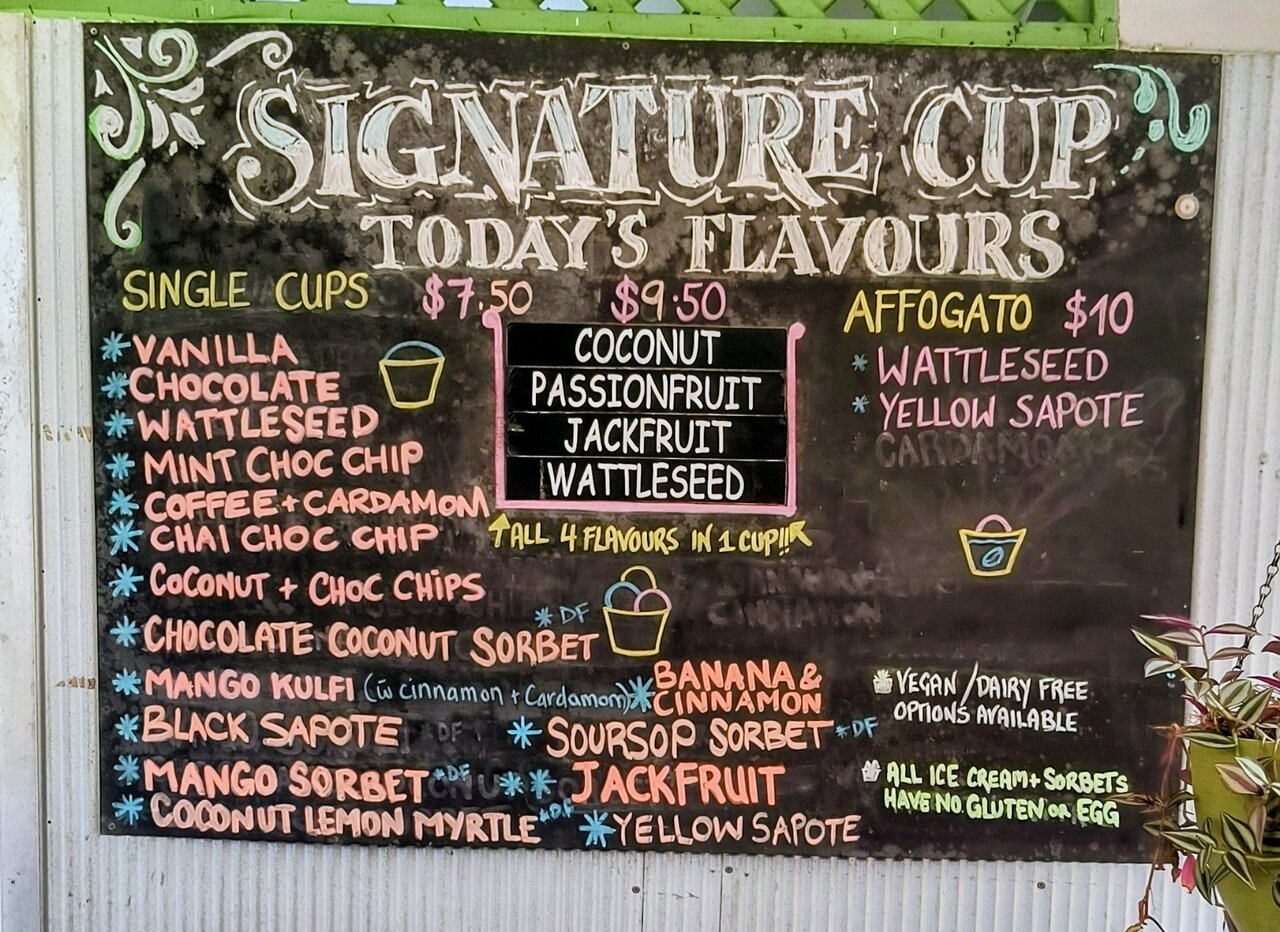 SIGNATURE CUP
TODAY'S FLAVOURS
SINGLE CUPS $7.50
* VANILLA
* CHOCOLATE
* WATTLESEED
* MINT CHOC CHIP
* COFFEE + CARDAMOM
* CHAI CHOC CHIP
* COCONUT + CHOC CHIPS
* CHOCOLATE COCONUT SORBET *DF
* MANGO KULFI (w cinnamon + Cardamom)
* BLACK SAPOTE
* MANGO SORBET *DF
* COCONUT LEMON MYRTLE *DF
* BANANA &
CINNAMON
* SOURSOP SORBET *DF
* * JACKFRUIT
* YELLOW SAPOTE
$9.50
COCONUT
PASSIONFRUIT
JACKFRUIT
WATTLESEED
ALL 4 FLAVOURS IN 1 CUP!!
AFFOGATO $10
* WATTLESEED
* YELLOW SAPOTE
* VEGAN/DAIRY FREE
OPTIONS AVAILABLE
* ALL ICE CREAM + SORBETS
HAVE NO GLUTEN OR EGG